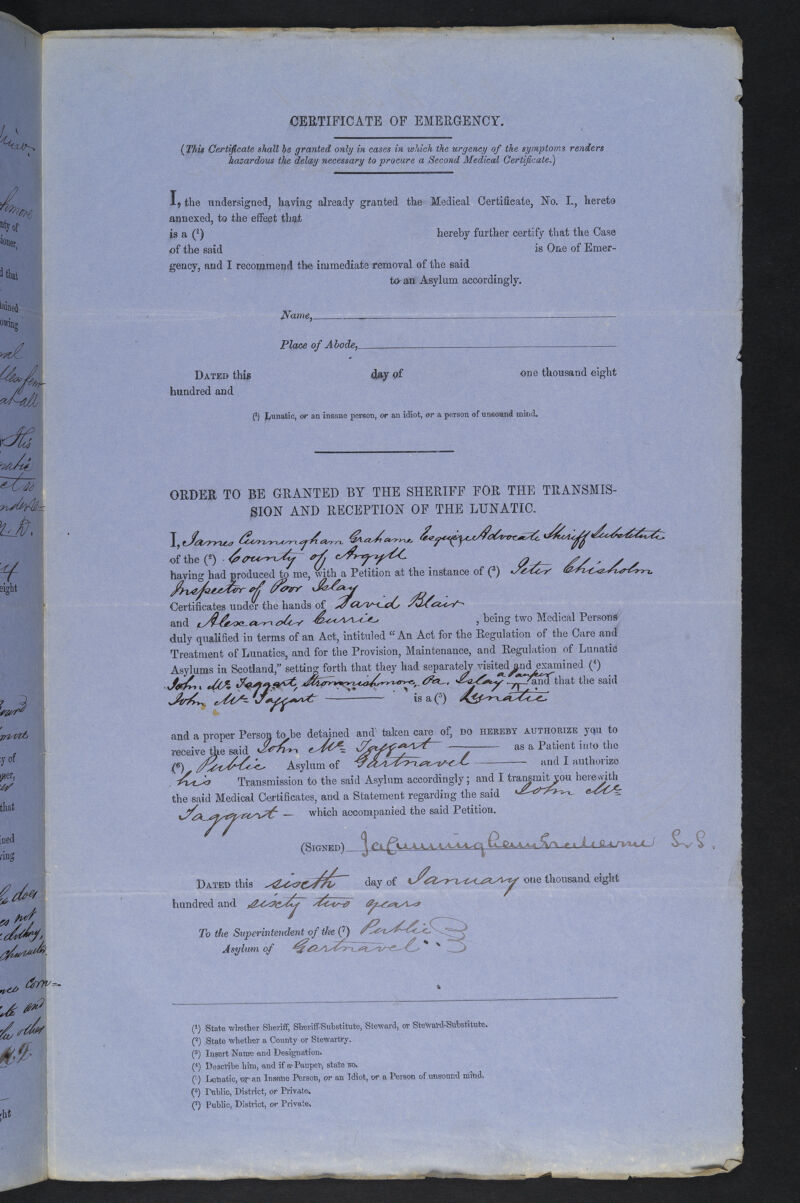 CERTIFICATE OF EMERGENCY.
(This Certificate shall be granted only in cases in which the urgency of the symptoms renders
hazardous the delay necessary to procure a Second Medical Certificate.)
I, the undersigned, having already granted the Medical Certificate, No. I., hereto
annexed, to the effect that
is a (¹) hereby further certify that the Case
of the said is One of Emer-
gency, and I recommend the immediate removal of the said
to an Asylum accordingly.
Name,
Place of Abode,
DATED this day of one thousand eight
hundred and
(¹) Lunatic, or an insane person, or an idiot, or a person of unsound mind.
ORDER TO BE GRANTED BY THE SHERIFF FOR THE TRANSMIS-
SION AND RECEPTION OF THE LUNATIC.
I, James Cunningham Grahame Esquire Advocate Sheriff Substitute
of the (²) County of Argyll
having had produced to me, with a Petition at the instance of (³) Peter Chisholm
Inspector of Poor Islay
Certificates under the hands of David Blair
and Alexander Currie , being two Medical Persons
duly qualified in terms of an Act, intituled “An Act for the Regulation of the Care and
Treatment of Lunatics, and for the Provision, Maintenance, and Regulation of Lunatic
Asylums in Scotland,” setting forth that they had separately visited and examined (⁴)
John Mc Taggart, Stromnishmore, Pa. Islay a Pauper and that the said
John Mc Taggart is a (⁵) Lunatic
and a proper Person to be detained and taken care of, DO HEREBY AUTHORIZE you to
receive the said John Mc Taggart as a Patient into the
(⁶) Public Asylum of Gartnavel and I authorize
his Transmission to the said Asylum accordingly; and I transmit you herewith
the said Medical Certificates, and a Statement regarding the said John Mc
Taggart – which accompanied the said Petition.
(SIGNED) Ja Cunningham Grahame S. S.
DATED this sixth day of January one thousand eight
hundred and sixty two years
To the Superintendent of the (⁷) Public
Asylum of Gartnavel
(¹) State whether Sheriff, Sheriff-Substitute, Steward, or Steward-Substitute.
(²) State whether a County or Stewartry.
(³) Insert Name and Designation.
(⁴) Describe him, and if a Pauper, state so.
(⁵) Lunatic, or an Insane Person, or an Idiot, or a Person of unsound mind.
(⁶) Public, District, or Private.
(⁷) Public, District, or Private.